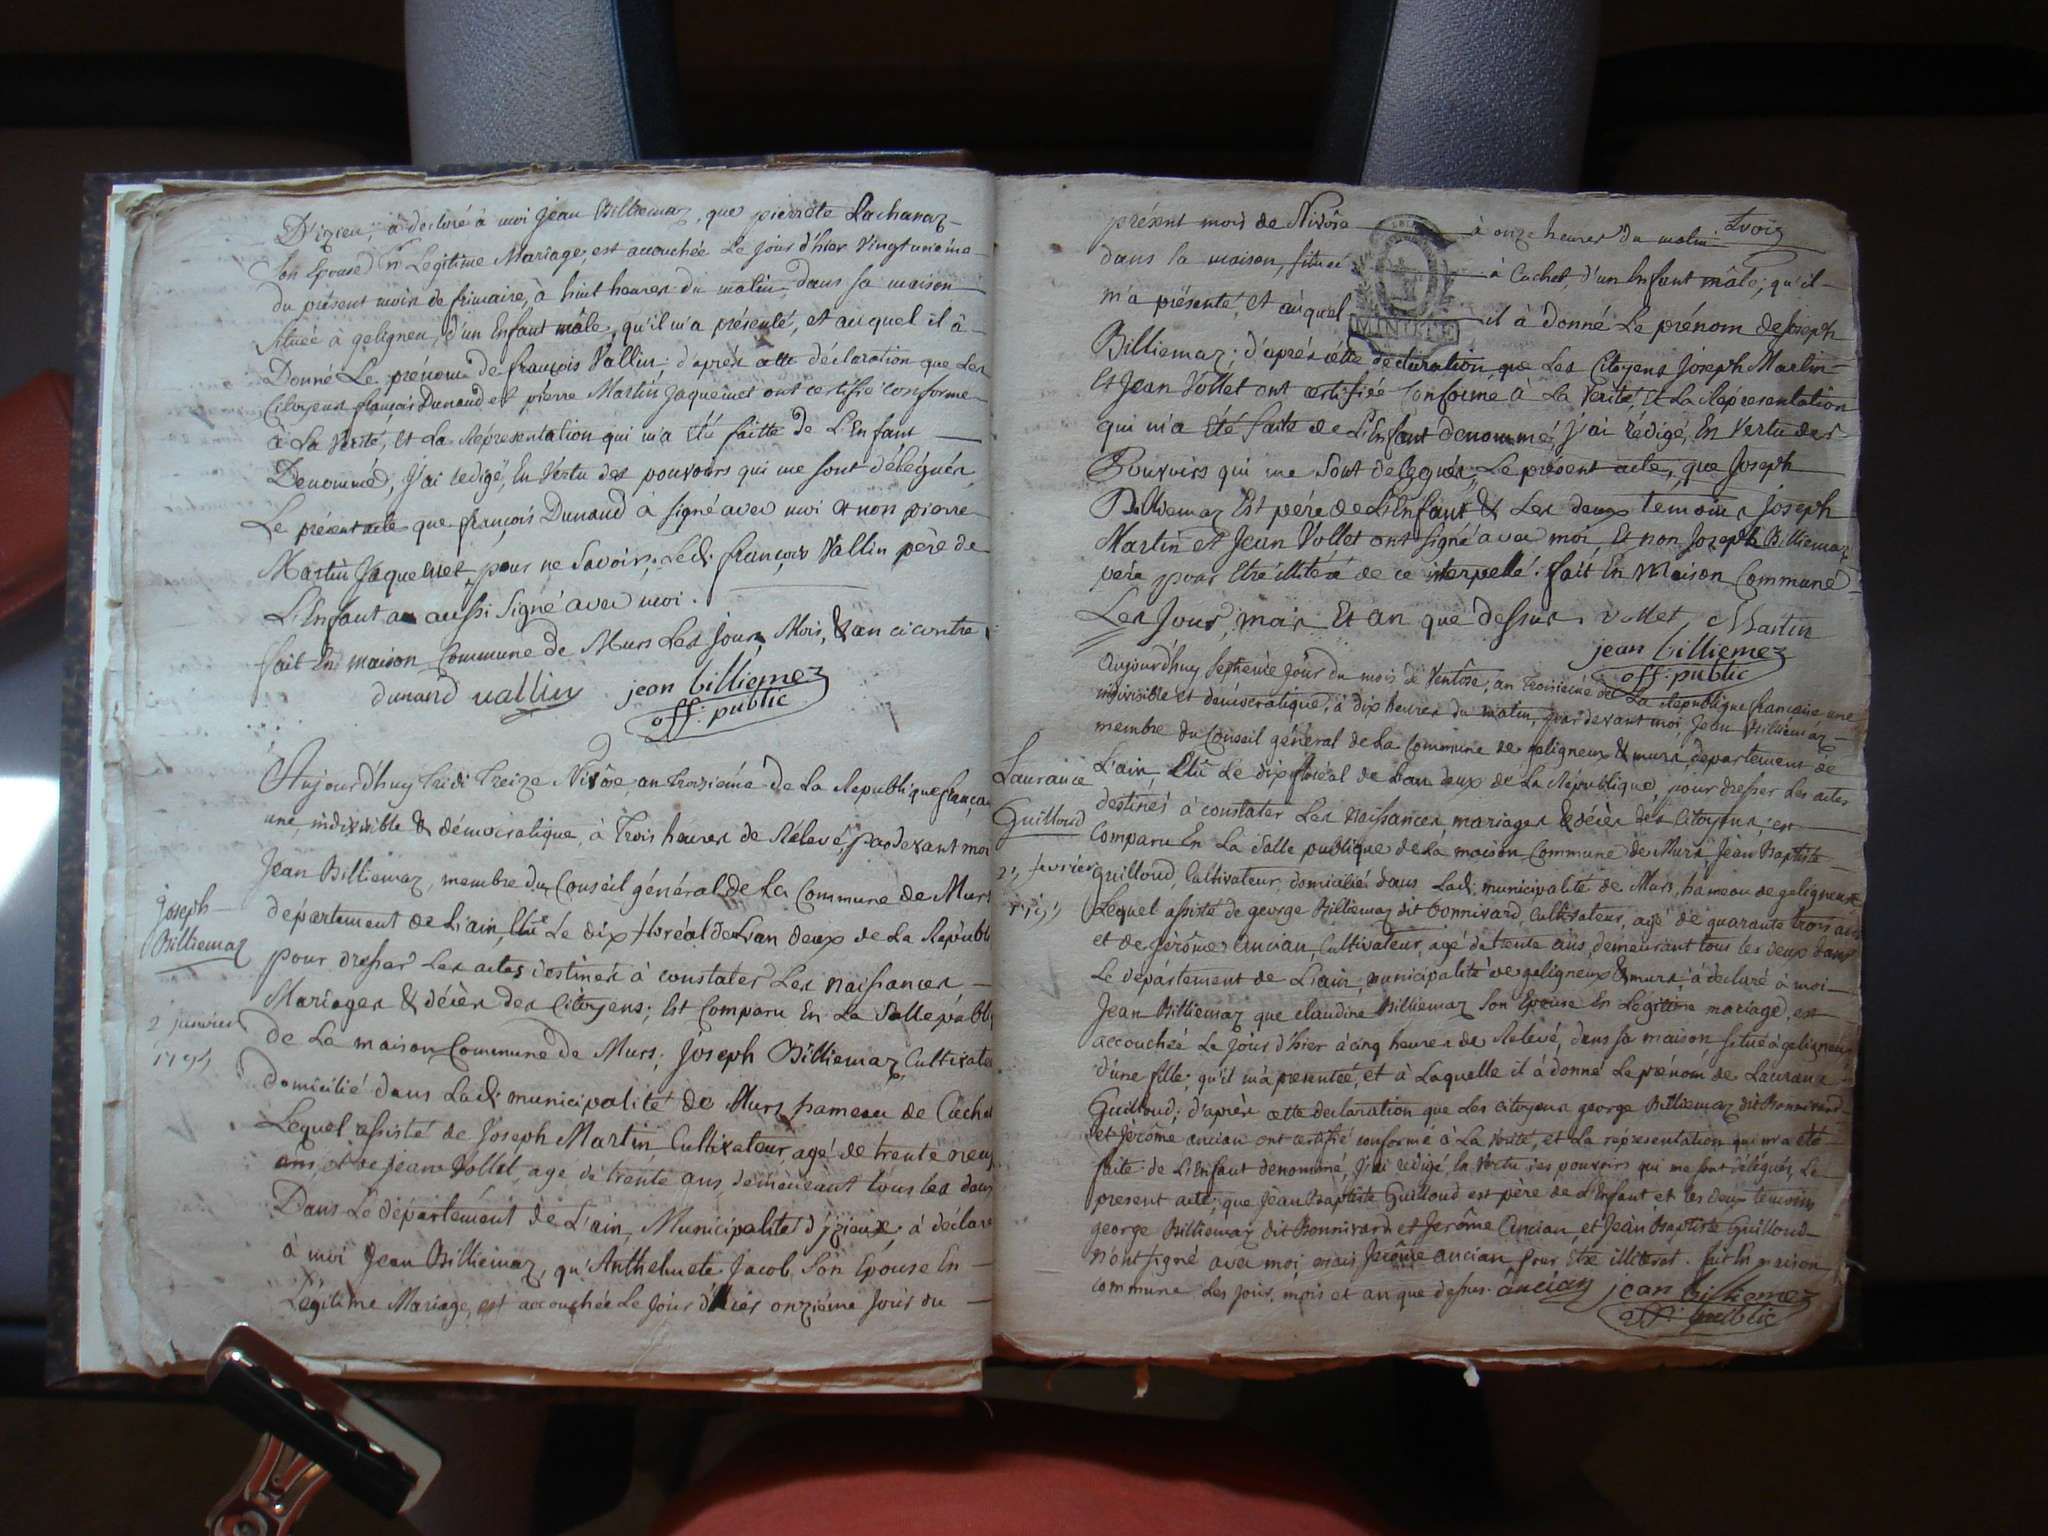 D'izieu, à declaré à moi Jean Billiemaz, que pierrete Lachanaz
Son Epouse En Legitime Mariage, est accouchée Le jour d'hier Vingtunieme
du présent mois de frimaire, à huit heures du matin, dans sa maison
Située à geligneu, d'un Enfant mâle, qu'il m'a présenté, et auquel il â
Donné Le prénom de françois Vallin; d'aprés cette déclaration que Les
Citoyens françois Dunand et piérre Martin Jaquemet ont certifié conforme
à La Verité, Et La Répresentation qui m'a Eté faitte de L'Enfant
Denommé, J'ai redigé, En Vertu des pouvoirs qui me sont délégués,
Le présent acte que françois Dunand à signé avec moi et non pierre
Martin Jaquemet pour ne Savoir, Ledt. françois Vallin pére de
L'Enfant a aussi Signé avec moi.
fait En maison Commune de Murs Les jour, Mois, & an ci contre
dunand vallin jean billiemez
off. public
Aujourd'huy tridi Treize Nivôse an troizieme de La Republique françai
une, indivisible & démocratique, à Trois heures de Rélevé, pardevant moi
Jean Billiemaz, membre du Conséil général de La Commune de Murs
département de L'ain, Elû Le dix floréal de L'an deux de La Republi
pour dresser Les actes destinés à constater Les naissances
Mariages & décès des Citoyens; Est Comparu En La Salle publi
de La maison Commune de Murs, Joseph Billiemaz, Cultivate
Joseph
Billiemaz
2 janvier
1795
domicilié dans Ladt. municipalité de Murs hameau de Cuchet
Lequel assisté de Joseph Martin, Cultivateur agé de trente neuf
ans, et de jean Vollet, agé de trente ans, demeurant tous Les deux
Dans Le département de L'ain, Municipalité d'izieux, à déclaré
à moi Jean Billiemaz, qu'Anthelmete Jacob, Son Epouse En
Légitime Mariage, est accouchée Le jour d'hier onziéme jour du
trois
présent mois de Nivôse à onze heures du matin
dans la maison, située à Cuchet, d'un Enfant mâle, qu'il
m'a présenté, et auquel il à donné Le prénom de Joseph
MINUTE
Billiemaz; d'aprés cétte déclaration que Les Citoyens Joseph Martin
Et Jean Vollet ont certifiée Conforme à La Verité, Et La Répresentation
qui m'a Eté faite de L'Enfant denommé, j'ai rédigé, En Vertu des
Pouvoirs qui me Sont delegués, Le présent acte, que Joseph
Billiemaz Est pére de L'Enfant & Les deux témoins Joseph
Martin et Jean Vollet ont signé avec moi, Et non Joseph Billiemaz
pére pour Etre illitéré de ce interpellé. fait En Maison Commune
Les Jour, mois Et an que dessus. vollet Martin
jean billiemez
off. public
Aujourd'huy septieme jour du mois de Ventôse, an troisiéme de La Republique française une
indivisible et démocratique, à dix heures du matin, pardevant moi, Jean Billiemaz
membre du Conseil général de La Commune de geligneux & murs, departement de
L'ain, Elû Le dix floréal de L'an deux de La République, pour dresser Les actes
destinés à constater Les Naissances, mariages & décès des Citoyens; est
Comparu En La Salle publique de La maison Commune de Murs Jean Baptiste
Laurance
Guilloud
25 fevrier
1795
Guilloud, Cultivateur domicilié dans Ladt. municipalité de Murs, hameau de geligneux
Lequel assisté de george Billiemaz dit bonnivard, Cultivateur, agé de quarante trois ans
et de Jérôme Ancian, Cultivateur, agé de trente ans, demeurant tous les deux dans
Le département de L'ain, municipalité de geligneux & murs, à déclaré à moi
Jean Billiemaz que claudine Billiemaz Son Epouse En Legitime mariage, est
accouchée Le jour d'hier à cinq heures de Relevé, dans sa maison situé à geligneux
d'une fille qu'il m'a presenteé, et à Laquelle il à donné Le prénom de Laurance
Guilloud; d'aprèr cette declaration que Les citoyens george Billiemaz dit Bonnivard
et Jérôme ancian ont certifié conforme à La Verité, et La répresentation qui m'a été
faite de L'Enfant denommé, J'ai redigé En Vertu des pouvoirs qui me sont délégués, Le
present acte, que Jean Baptiste Guilloud est pére de L'Enfant et les deux temoins
george Billiemaz dit Bonnivard et Jerôme Ancian, et Jean Baptiste Guilloud
n'ont signé avec moi, mais Jerôme ancian, pour Etre illiterés. fait En maison
commune Les jour, mois et an que dessus. âncian jean billiemez
off. public